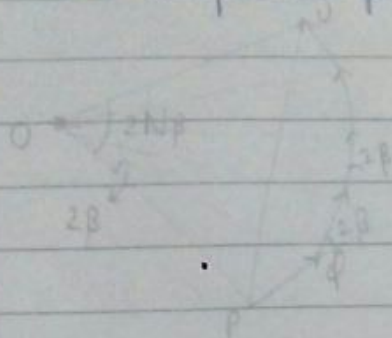 U
O
2Nβ
2β
2β
2β
P